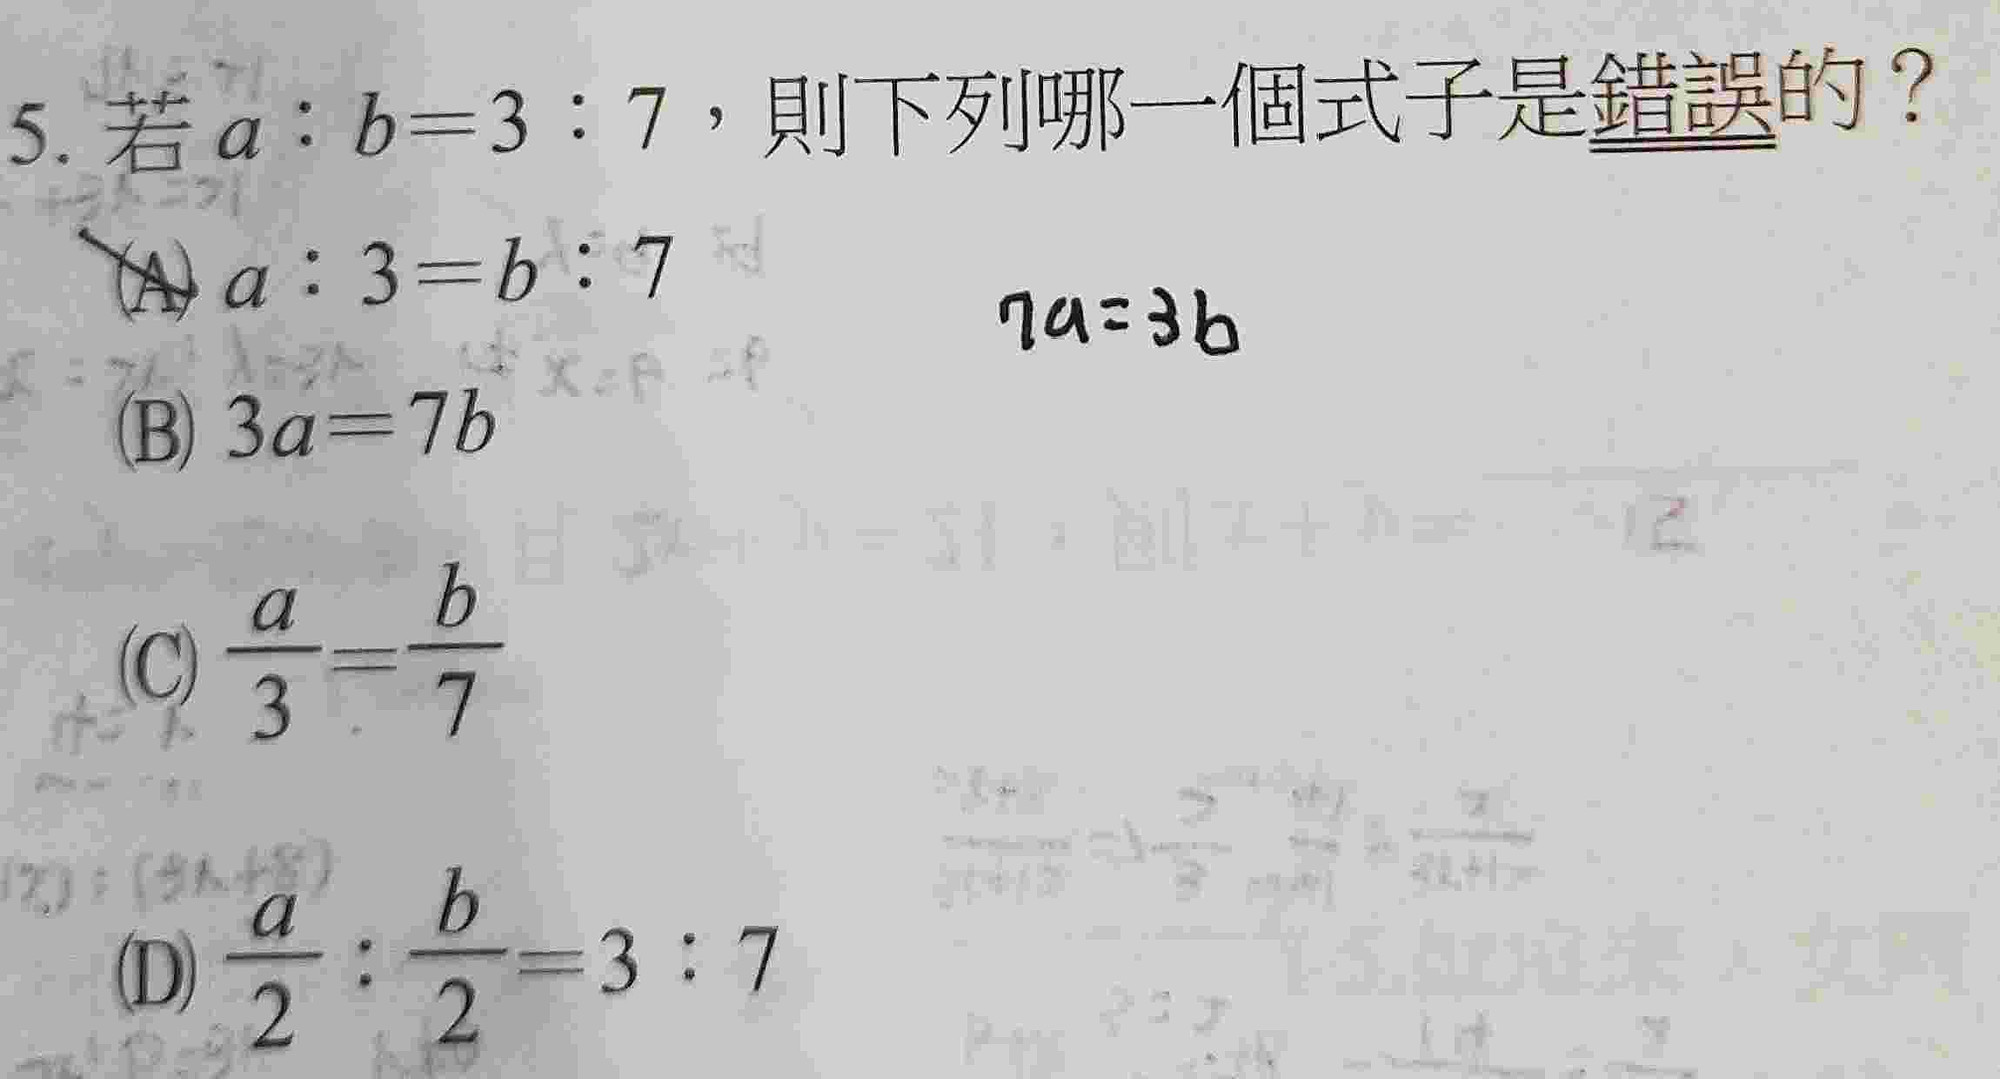 5. 若 a：b=3：7，則下列哪一個式子是錯誤的？
(A) a：3=b：7
7a=3b
(B) 3a=7b
(C) a/3=b/7
(D) a/2：b/2=3：7